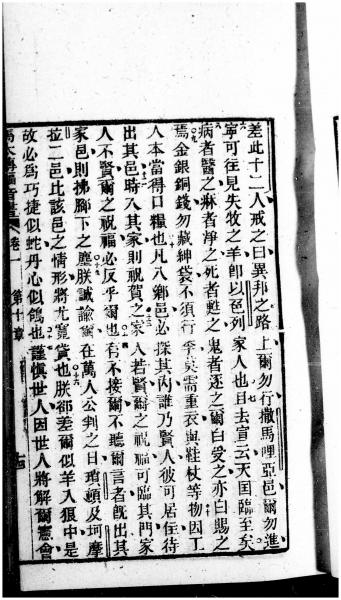 差此十二人戒之曰異邦之路上爾勿行撒馬哩亞邑爾勿進
寧可往見失牧之羊卽以色列家人也曰去宣云天国臨至矣
病者醫之癩者淨之死者甦之鬼者逐之爾白受之亦白賜之
焉金銀銅錢勿藏紳袋不須行李莫需重衣與鞋杖等物因工
人本當得口糧也凡入鄉邑必探其內誰乃賢人彼可居住待
出其邑時入其家則祝賀之家人若賢爾之祝福可臨其門家
人不賢爾之祝福必反乎爾也有不接爾不聽爾言者旣出其
家邑則拂腳下之塵朕誠諭爾在萬人公判之日瑣頓及坷摩
拉二邑比該邑之情形將尤寬貸也朕卻差爾似羊入狼中是
故必爲巧捷似蛇丹心似鴿也謹慎世人因世人將解爾憲會
馬太傳福音書 卷一 第十章